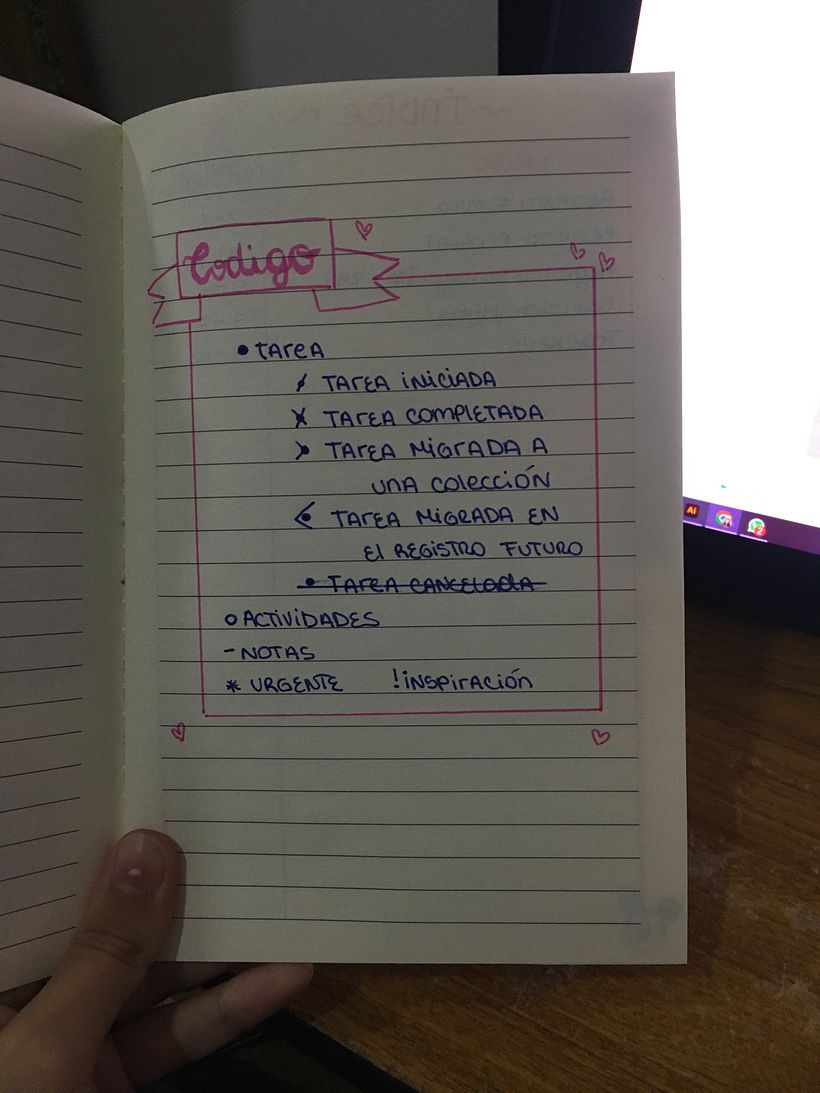 Codigo
• TAREA
/ TAREA INICIADA
X TAREA COMPLETADA
> TAREA MIGRADA A
UNA COLECCIÓN
< TAREA MIGRADA EN
El REGISTRO FUTURO
• TAREA CANCELADA
o ACTIVIDADES
- NOTAS
* URGENTE ! INSPIRACIÓN
Ai